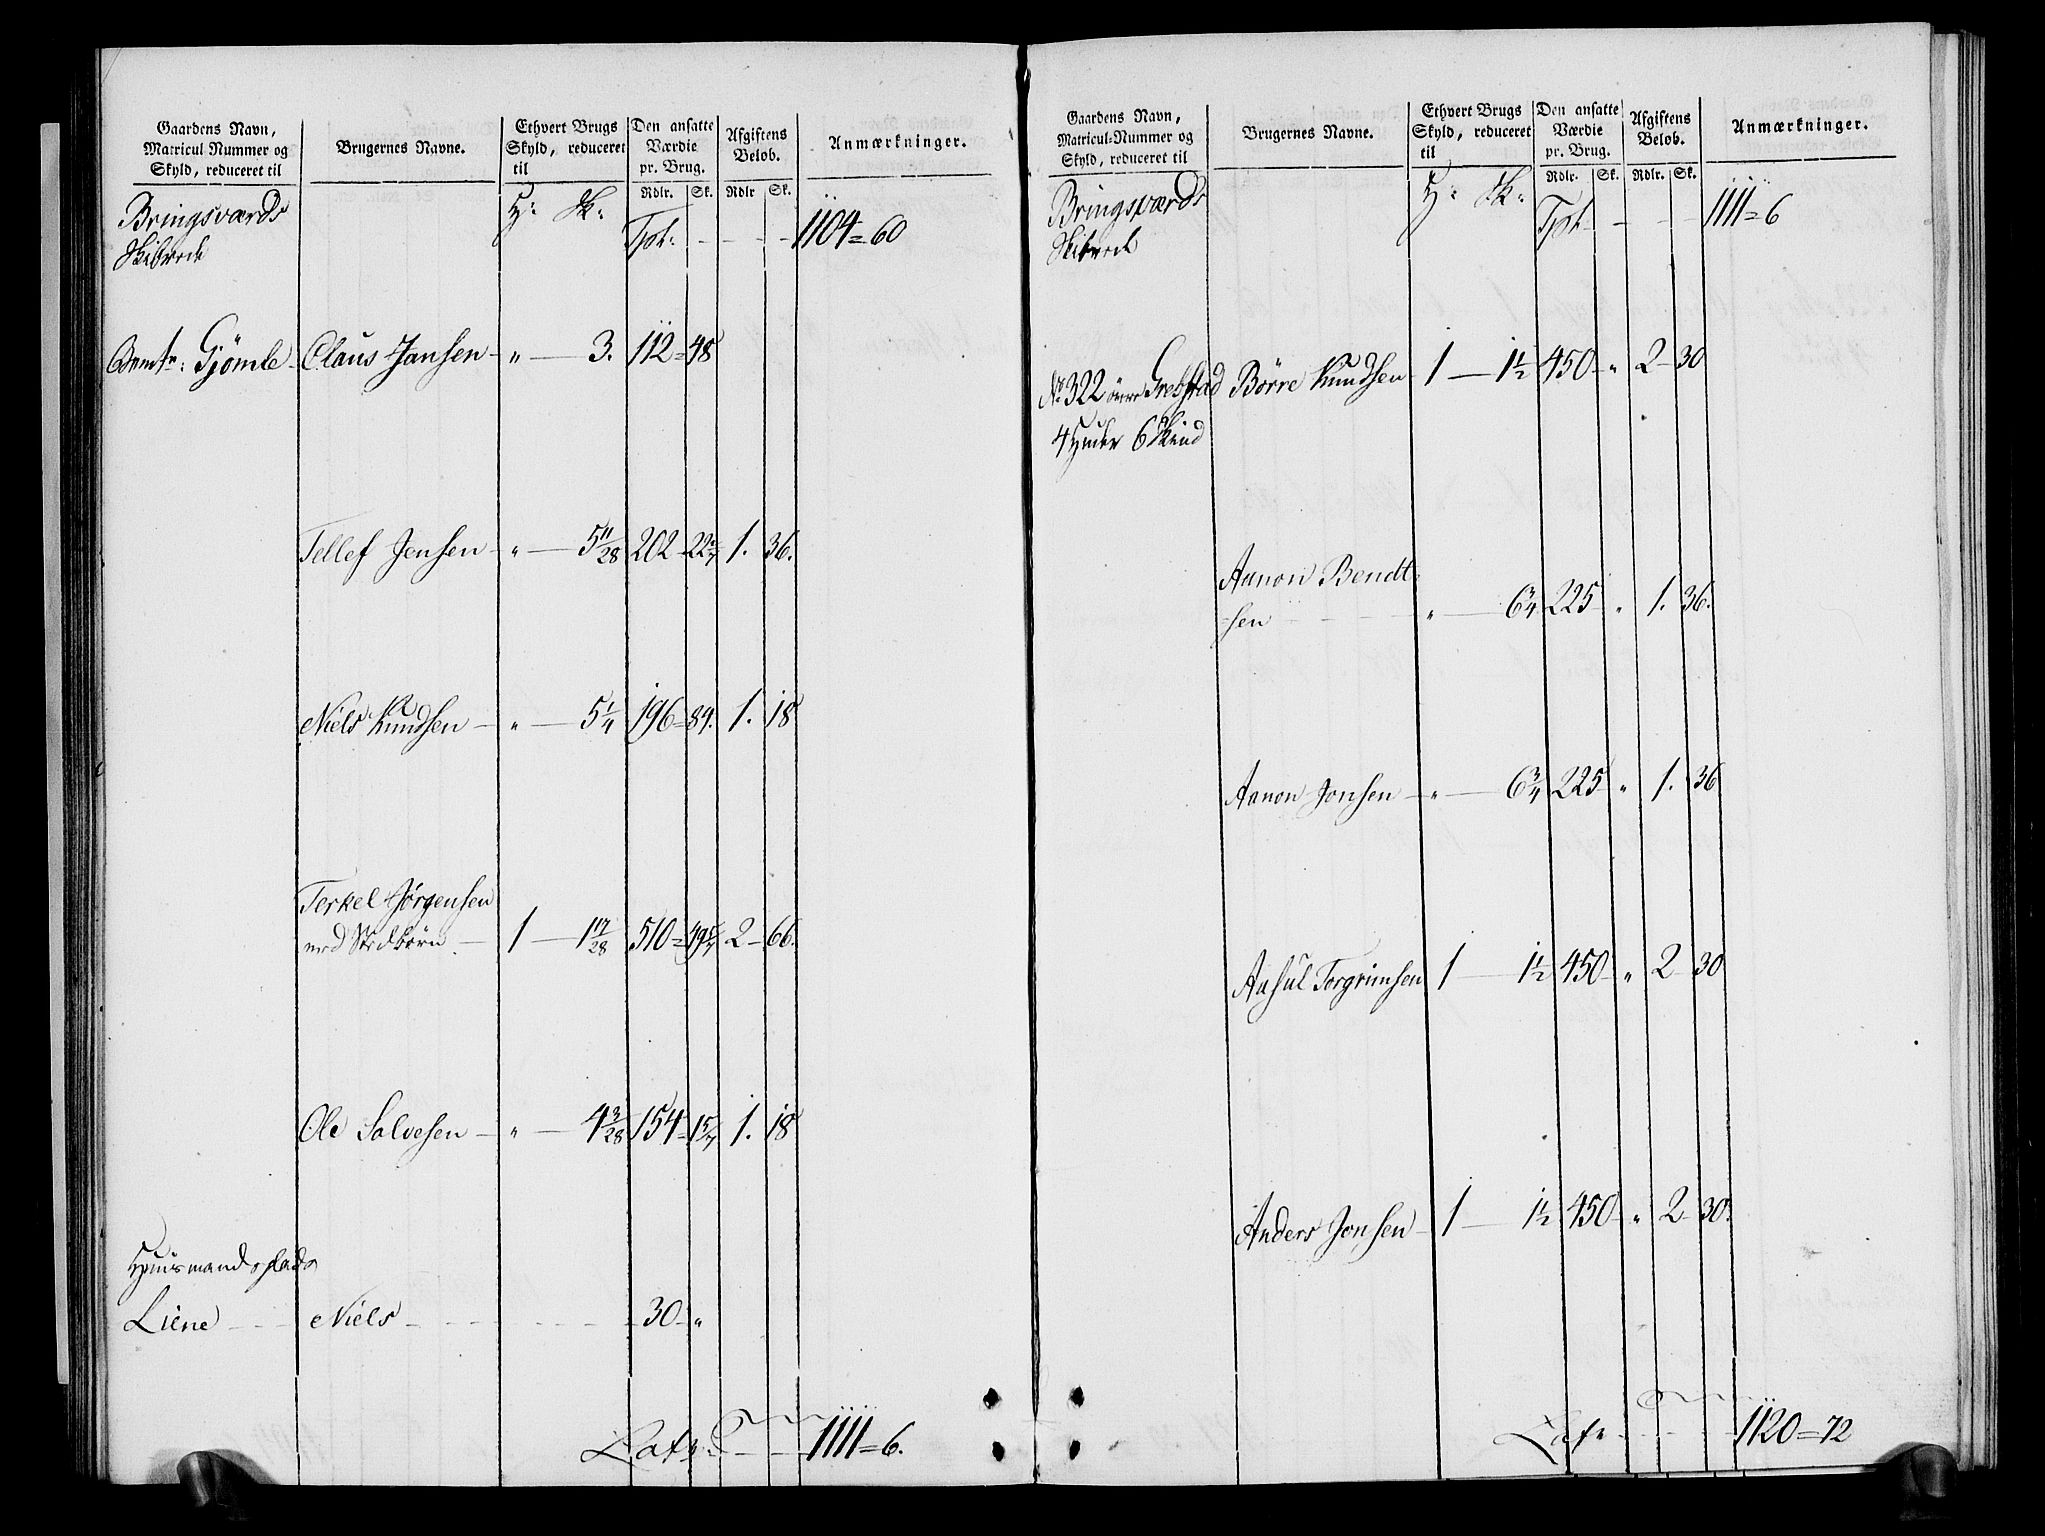 Gaardens Navn,
Matricul Nummer og
Skyld, reduceret til
Brugernes Navne.
Ethvert Brugs
Skyld, reduceret
til
Den ansatte
Værdie
pr. Brug.
Rdlr. Sk.
Afgiftens
Beløb.
Rdlr Sk.
Anmærkninger.
Bringsværds H: Sk: Tpt: - - - - 1104=60
Skibrede
Gjømle Claus Jansen - " - 3. 112=48
Tellef Jensen - " - 5 11/28 202 - 22 2/7 1. 36.
Niels Knudsen - " - 5 1/4 196=84. 1. 18
Terkel Jørgensen
med Stedbørn - 1 - 1 17/28 510=49 5/7 2 - 66.
Ole Salvesen - " - 4 3/28 154 - 1 5/7 1. 18
Huusmandsplads
Liene - - - Niels - - - - - - 30 - "
Latr: - - 1111=6.
Gaardens Navn,
Matricul-Nummer og
Skyld, reduceret til
Brugernes Navne.
Ethvert Brugs
Skyld, reduceret
til
Den ansatte
Værdie
pr. Brug.
Rdlr. Sk.
Afgiftens
Beløb.
Rdlr. Sk.
Anmærkninger.
Bringsværds H: Sk: Tpt - - - - 1111=6
Skibrede
No 322 øvre Grebstad Børre Knudsen - 1 - 1 1/2 450 - " 2 - 30
4 Huder 6 Skind
Aanon Bendt=
=sen - - - - " - 6 3/4 225 - " 1. 36.
Aanon Jonsen - " - 6 3/4 225 - " 1. 36
Aasul Torgrimsen 1 - 1 1/2 450 - " 2 - 30
Anders Jonsen - 1 - 1 1/2 450 - " 2 - 30.
Latr - - - - 1120=72